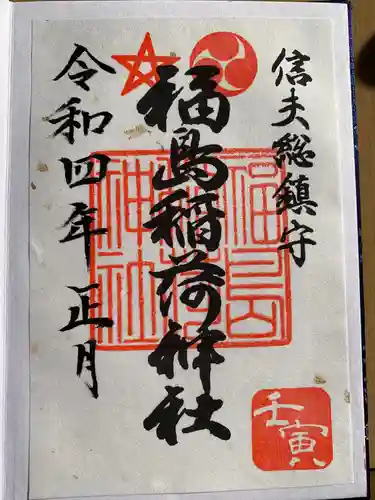 信夫総鎮守
福島稲荷神社
令和四年 正月
福島稲荷神社
壬寅